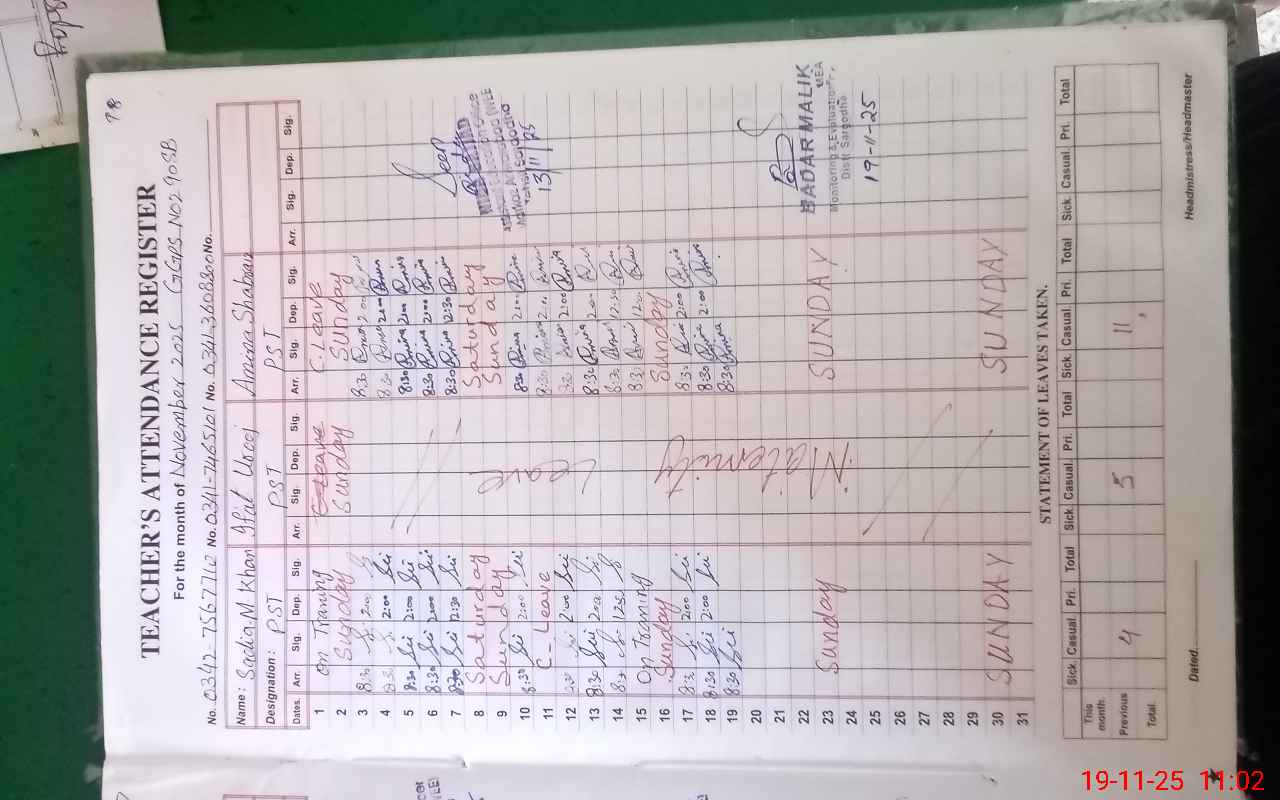 TEACHER'S ATTENDANCE REGISTER
For the month of November 2025 GGPS NO290SB
No. 0342-7567712 No. 0341-7465101 No. 0341-3608800 No.
Name: Sadia M Khan Amina Shaban
Designation: PST PST PST
Dates. Arr. Sig. Dep. Sig. Arr. Sig. Dep. Sig. Arr. Sig. Dep. Sig. Arr. Sig. Dep. Sig.
1 On Traning C.Leave C.Leave
2 Sunday Sunday Sunday
3 8:30 2:00 8:30 2:00
4 8:30 2:00 8:30 2:00
5 8:30 2:00 8:30 2:00
6 8:30 2:00 8:30 2:00
7 8:30 12:30 8:30 12:30
8 Saturday Saturday
9 Sunday Sunday
10 8:30 2:00 8:30 2:00
11 C-Leave 8:30 2:00
12 2:00 2:00
13 8:30 2:00 8:30 2:00
14 8:30 8:30 12:30
15 On Traning 8:30
16 Sunday Sunday
17 8:30 2:00 8:30 2:00
18 8:30 2:00 8:30 2:00
19 8:30 8:30
20
21
22
23 Sunday SUNDAY
24
25
26
27
28
29
30 SUNDAY SUNDAY
31
Maternity
Leave
Seen
13/11/25
BADAR MALIK
MEA
Monitoring & Evaluation
Distt Sargodha
19-11-25
STATEMENT OF LEAVES TAKEN.
Sick. Casual. Pri. Total Sick. Casual. Pri. Total Sick. Casual Pri. Total Sick. Casual. Pri. Total
This month
Previous 4 5 11
Total.
Dated. Headmistress/Headmaster
19-11-25 11:02